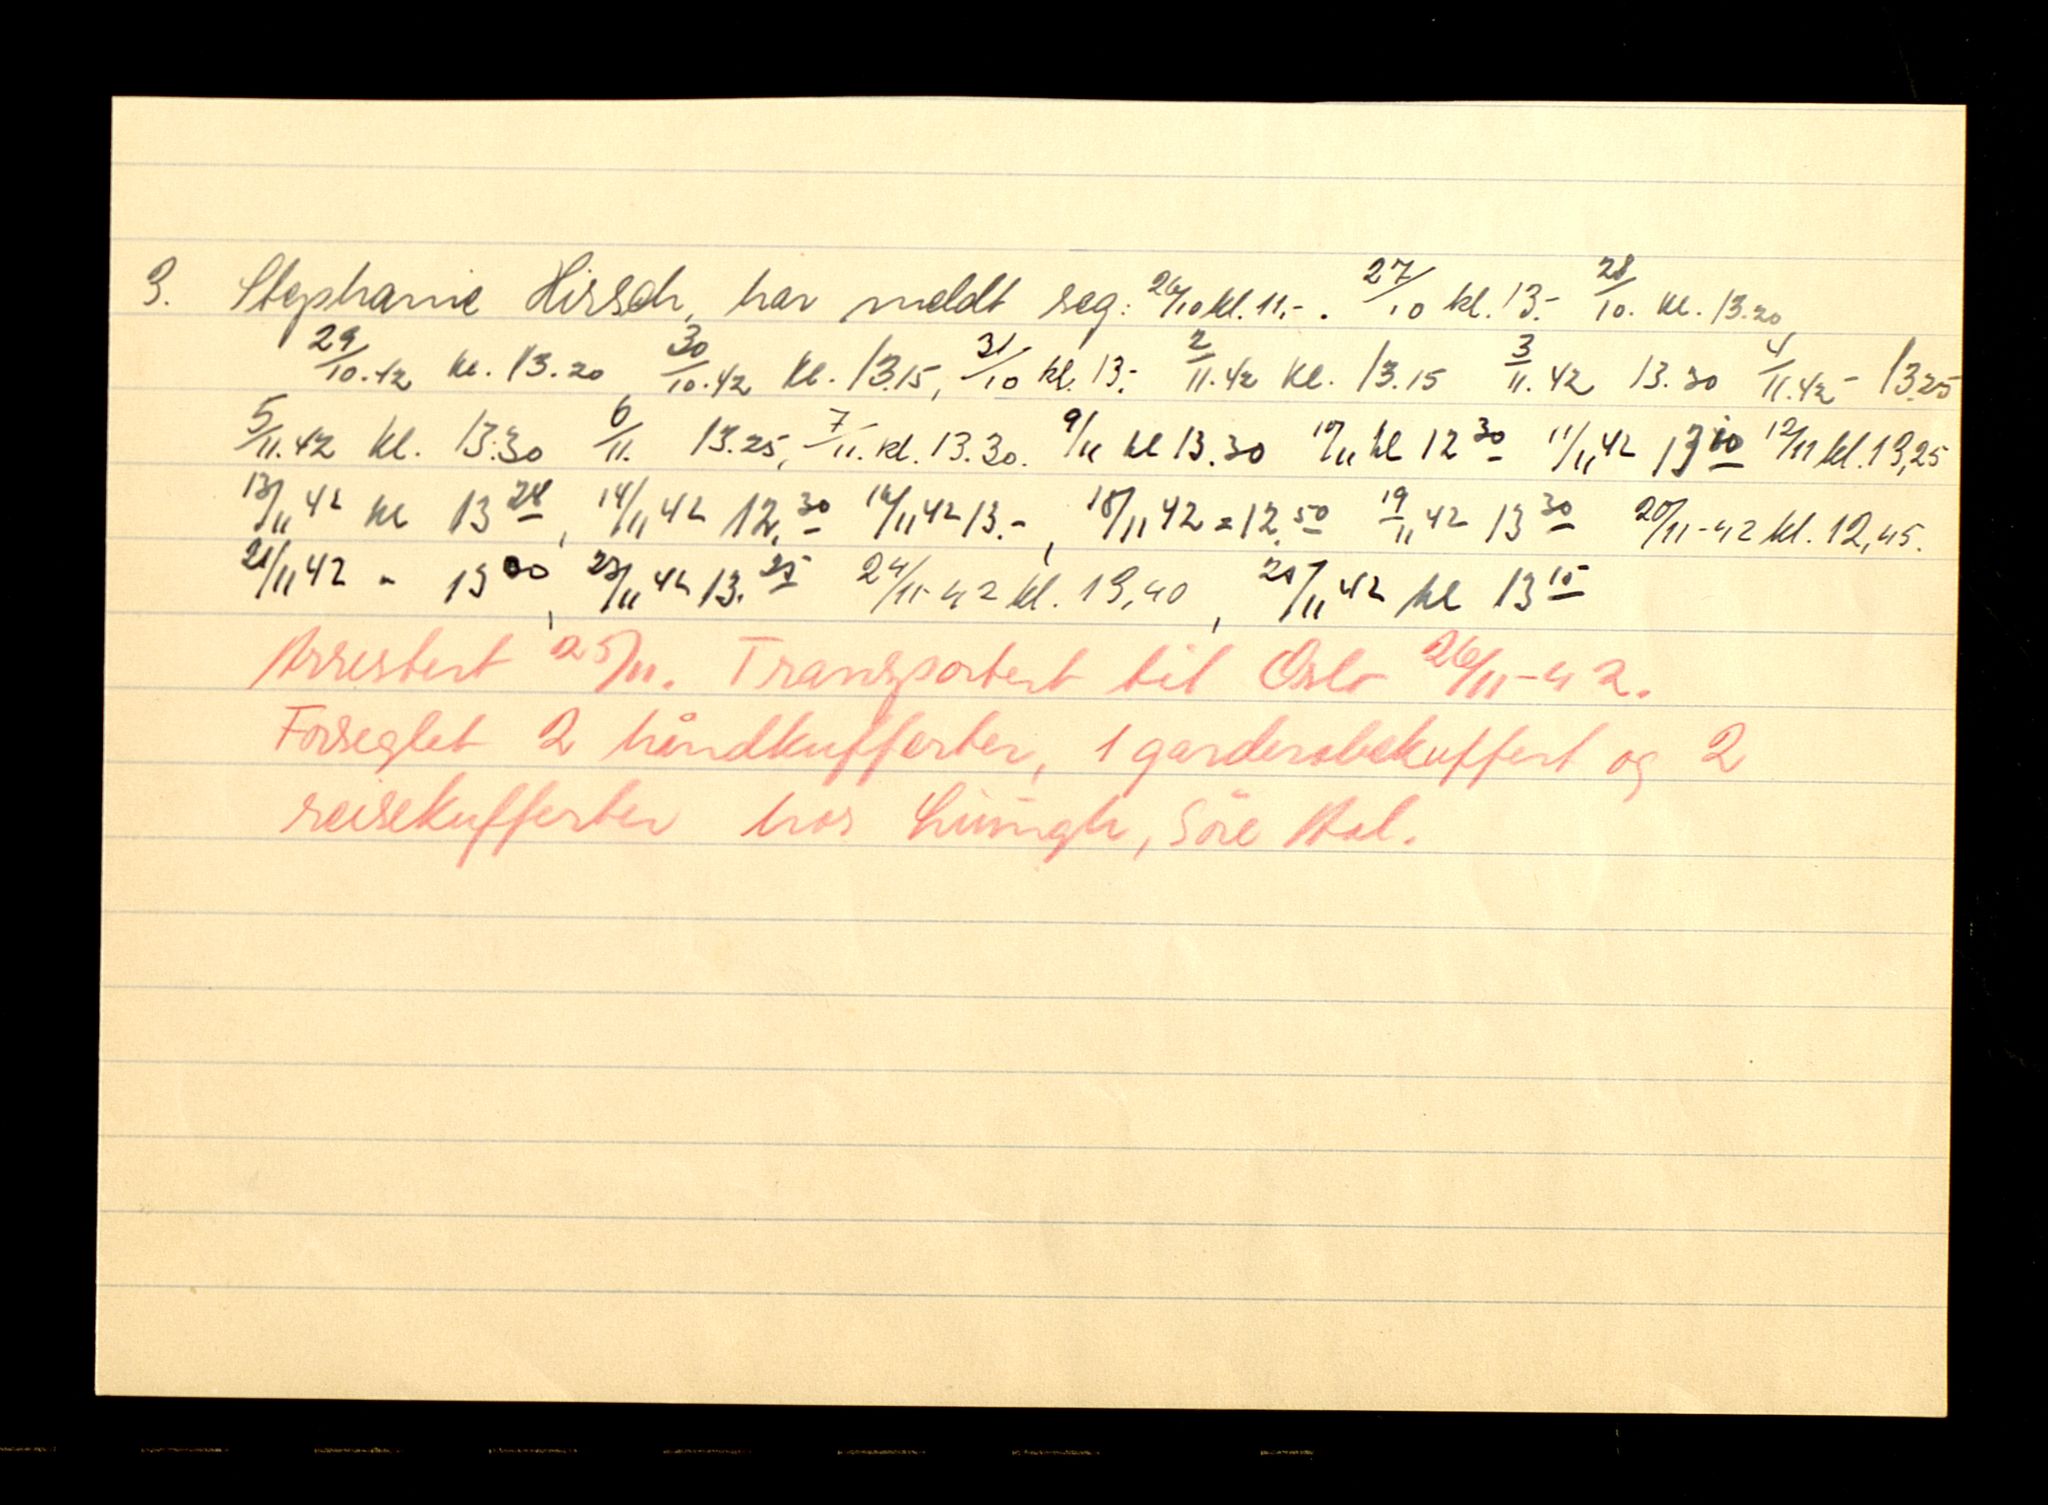 3. Stephanie Hirsch, har meldt seg: 26/10 kl. 11.-. 27/10 kl. 13.- 28/10. kl. 13.20,
29/10.42 kl. 13.20 30/10.42 kl. 13.15, 31/10 kl. 13.- 2/11.42 kl. 13.15 3/11.42 13.30 4/11.42 - 13.25
5/11.42 kl. 13.30 6/11. 13.25, 7/11. kl. 13.30. 9/11 kl 13.30 10/11 kl 12 30 11/11 42 13 00 12/11 kl. 13,25
13/11 42 kl 13 28, 14/11 42 12.30 16/11 42 13.-, 18/11 42 = 12.50 19/11 42 13 30 20/11-42 kl. 12,45.
21/11 42 - 13 00, 23/11 42 13.25 24/11-42 kl. 13,40, 25/11 42 kl 13 15
Arrestert 25/11. Transportert til Oslo 26/11-42.
Forseglet 2 håndkufferter, 1 garderobekuffert og 2
reisekufferter hos, Söre Aal.